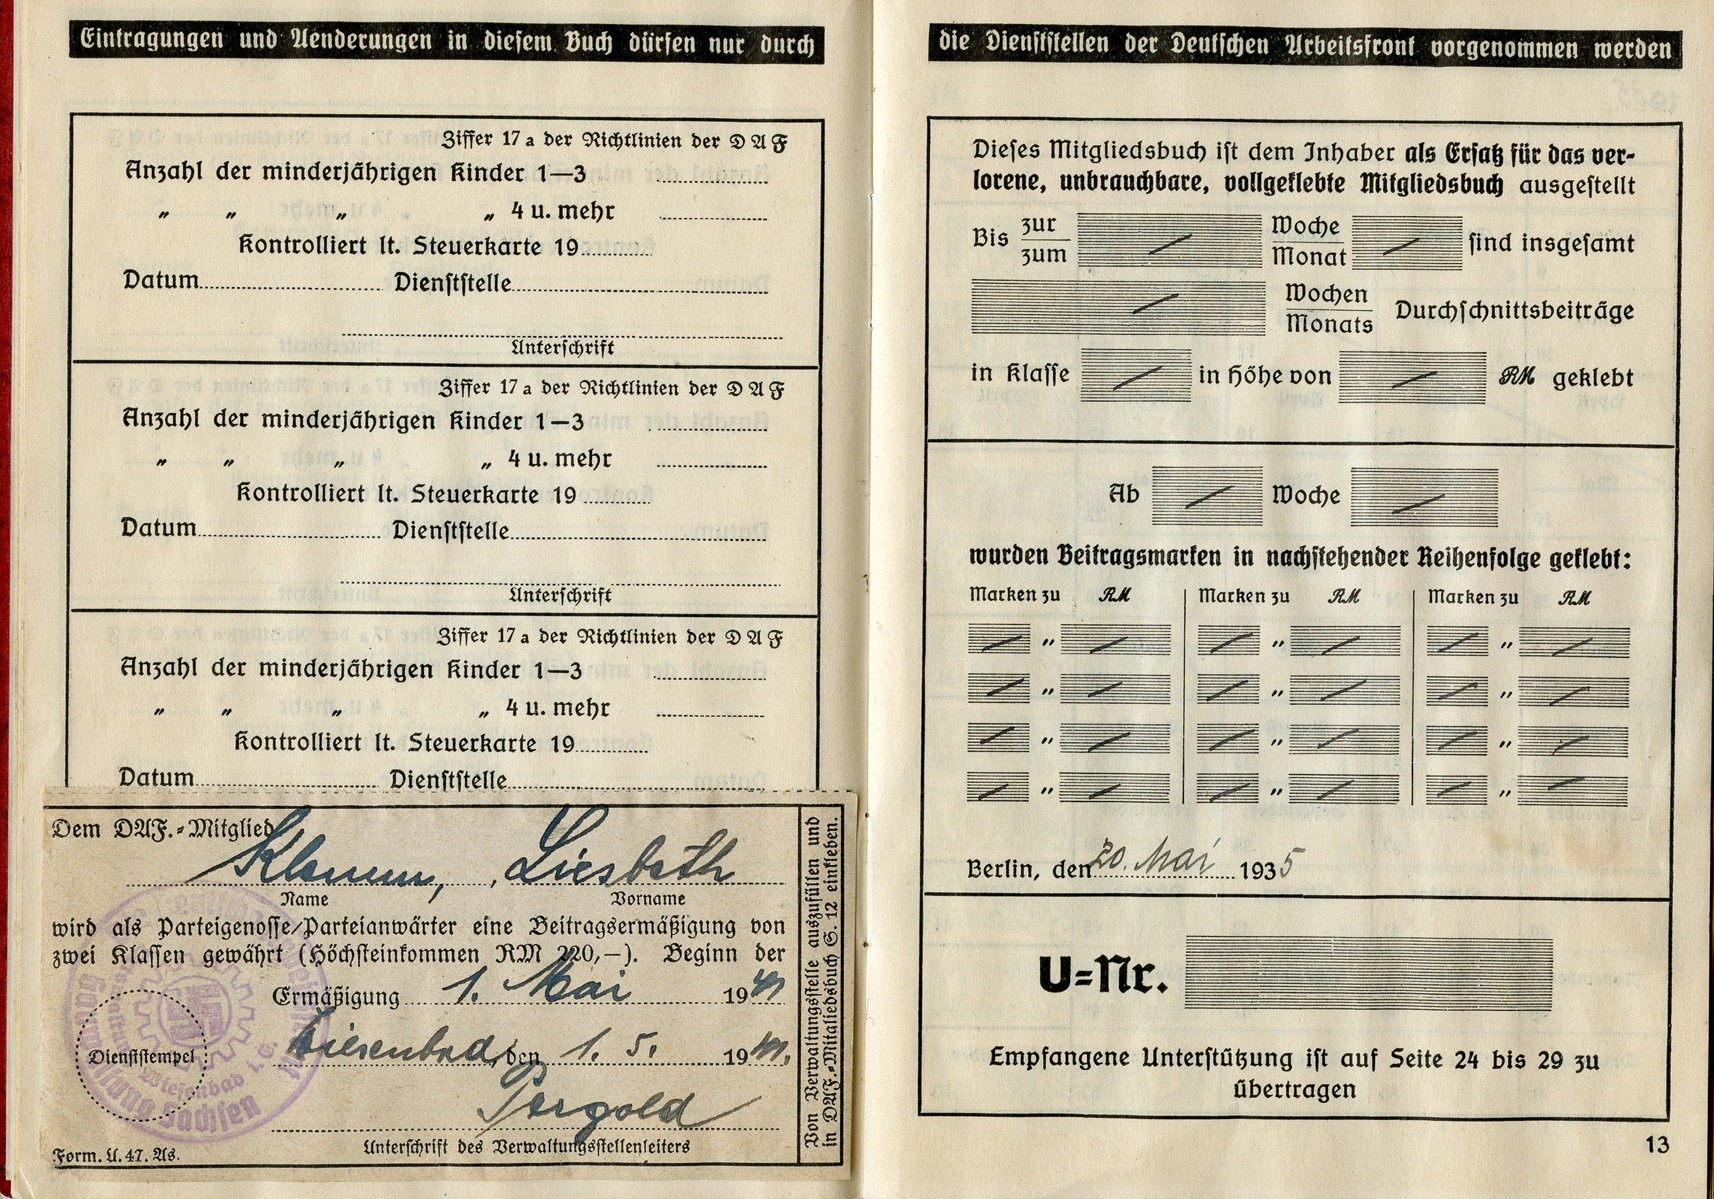 Eintragungen und Aenderungen in diesem Buch dürfen nur durch
Ziffer 17 a der Richtlinien der D A F
Anzahl der minderjährigen Kinder 1—3
„ „ „ „ 4 u. mehr
Kontrolliert lt. Steuerkarte 19
Datum Dienststelle
Unterschrift
Ziffer 17 a der Richtlinien der D A F
Anzahl der minderjährigen Kinder 1—3
„ „ „ „ 4 u. mehr
Kontrolliert lt. Steuerkarte 19
Datum Dienststelle
Unterschrift
Ziffer 17 a der Richtlinien der D A F
Anzahl der minderjährigen Kinder 1—3
„ „ „ „ 4 u. mehr
Kontrolliert lt. Steuerkarte 19
Datum Dienststelle
Dem DAF.-Mitglied
Klamm, Liesbeth
Name Vorname
wird als Parteigenosse/Parteianwärter eine Beitragsermäßigung von
zwei Klassen gewährt (Höchsteinkommen RM 220,—). Beginn der
Ermäßigung 1. Mai 1941
Wiesenbad, den 1. 5. 1941.
Dienststempel
Wiesenbad i. E.
Gauwaltung Sachsen
Unterschrift des Verwaltungsstellenleiters
Form. U. 47. As.
Von Verwaltungsstelle auszufüllen und
in DAF.-Mitgliedsbuch S. 12 einkleben.
die Dienststellen der Deutschen Arbeitsfront vorgenommen werden
Dieses Mitgliedsbuch ist dem Inhaber als Ersatz für das ver-
lorene, unbrauchbare, vollgeklebte Mitgliedsbuch ausgestellt
Bis zur/zum Woche/Monat sind insgesamt
Wochen/Monats Durchschnittsbeiträge
in Klasse in Höhe von RM geklebt
Ab Woche
wurden Beitragsmarken in nachstehender Reihenfolge geklebt:
Marken zu RM Marken zu RM Marken zu RM
„ „ „
„ „ „
„ „ „
„ „ „
Berlin, den 20. Mai 1935
U=Nr.
Empfangene Unterstützung ist auf Seite 24 bis 29 zu
übertragen
13